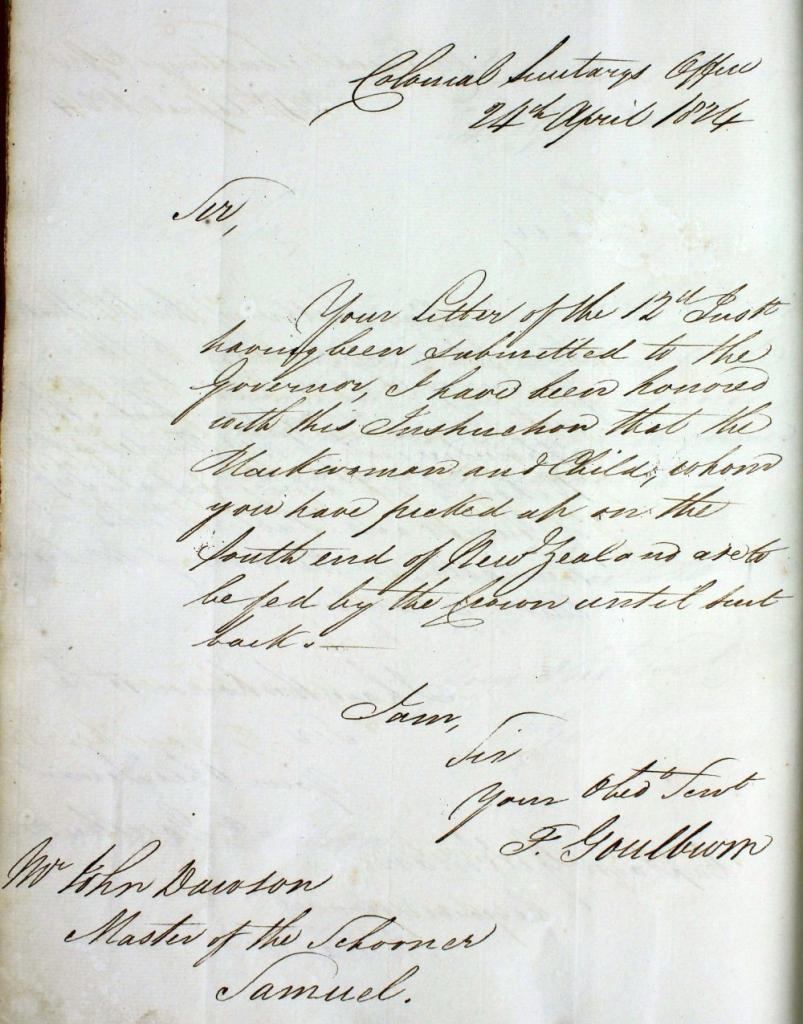 Colonial Secretarys Office
24th April 1824
Sir,
Your Letter of the 12th Inst
having been submitted to the
Governor, I have been honored
with this Instruction that the
Blackwoman and Child, whom
you have picked up on the
South end of New Zealand are to
be fed by the Crown until sent
back.
I am,
Sir
Your Obed Servt
F. Goulburn
Mr John Dawson
Master of the Schooner
Samuel.